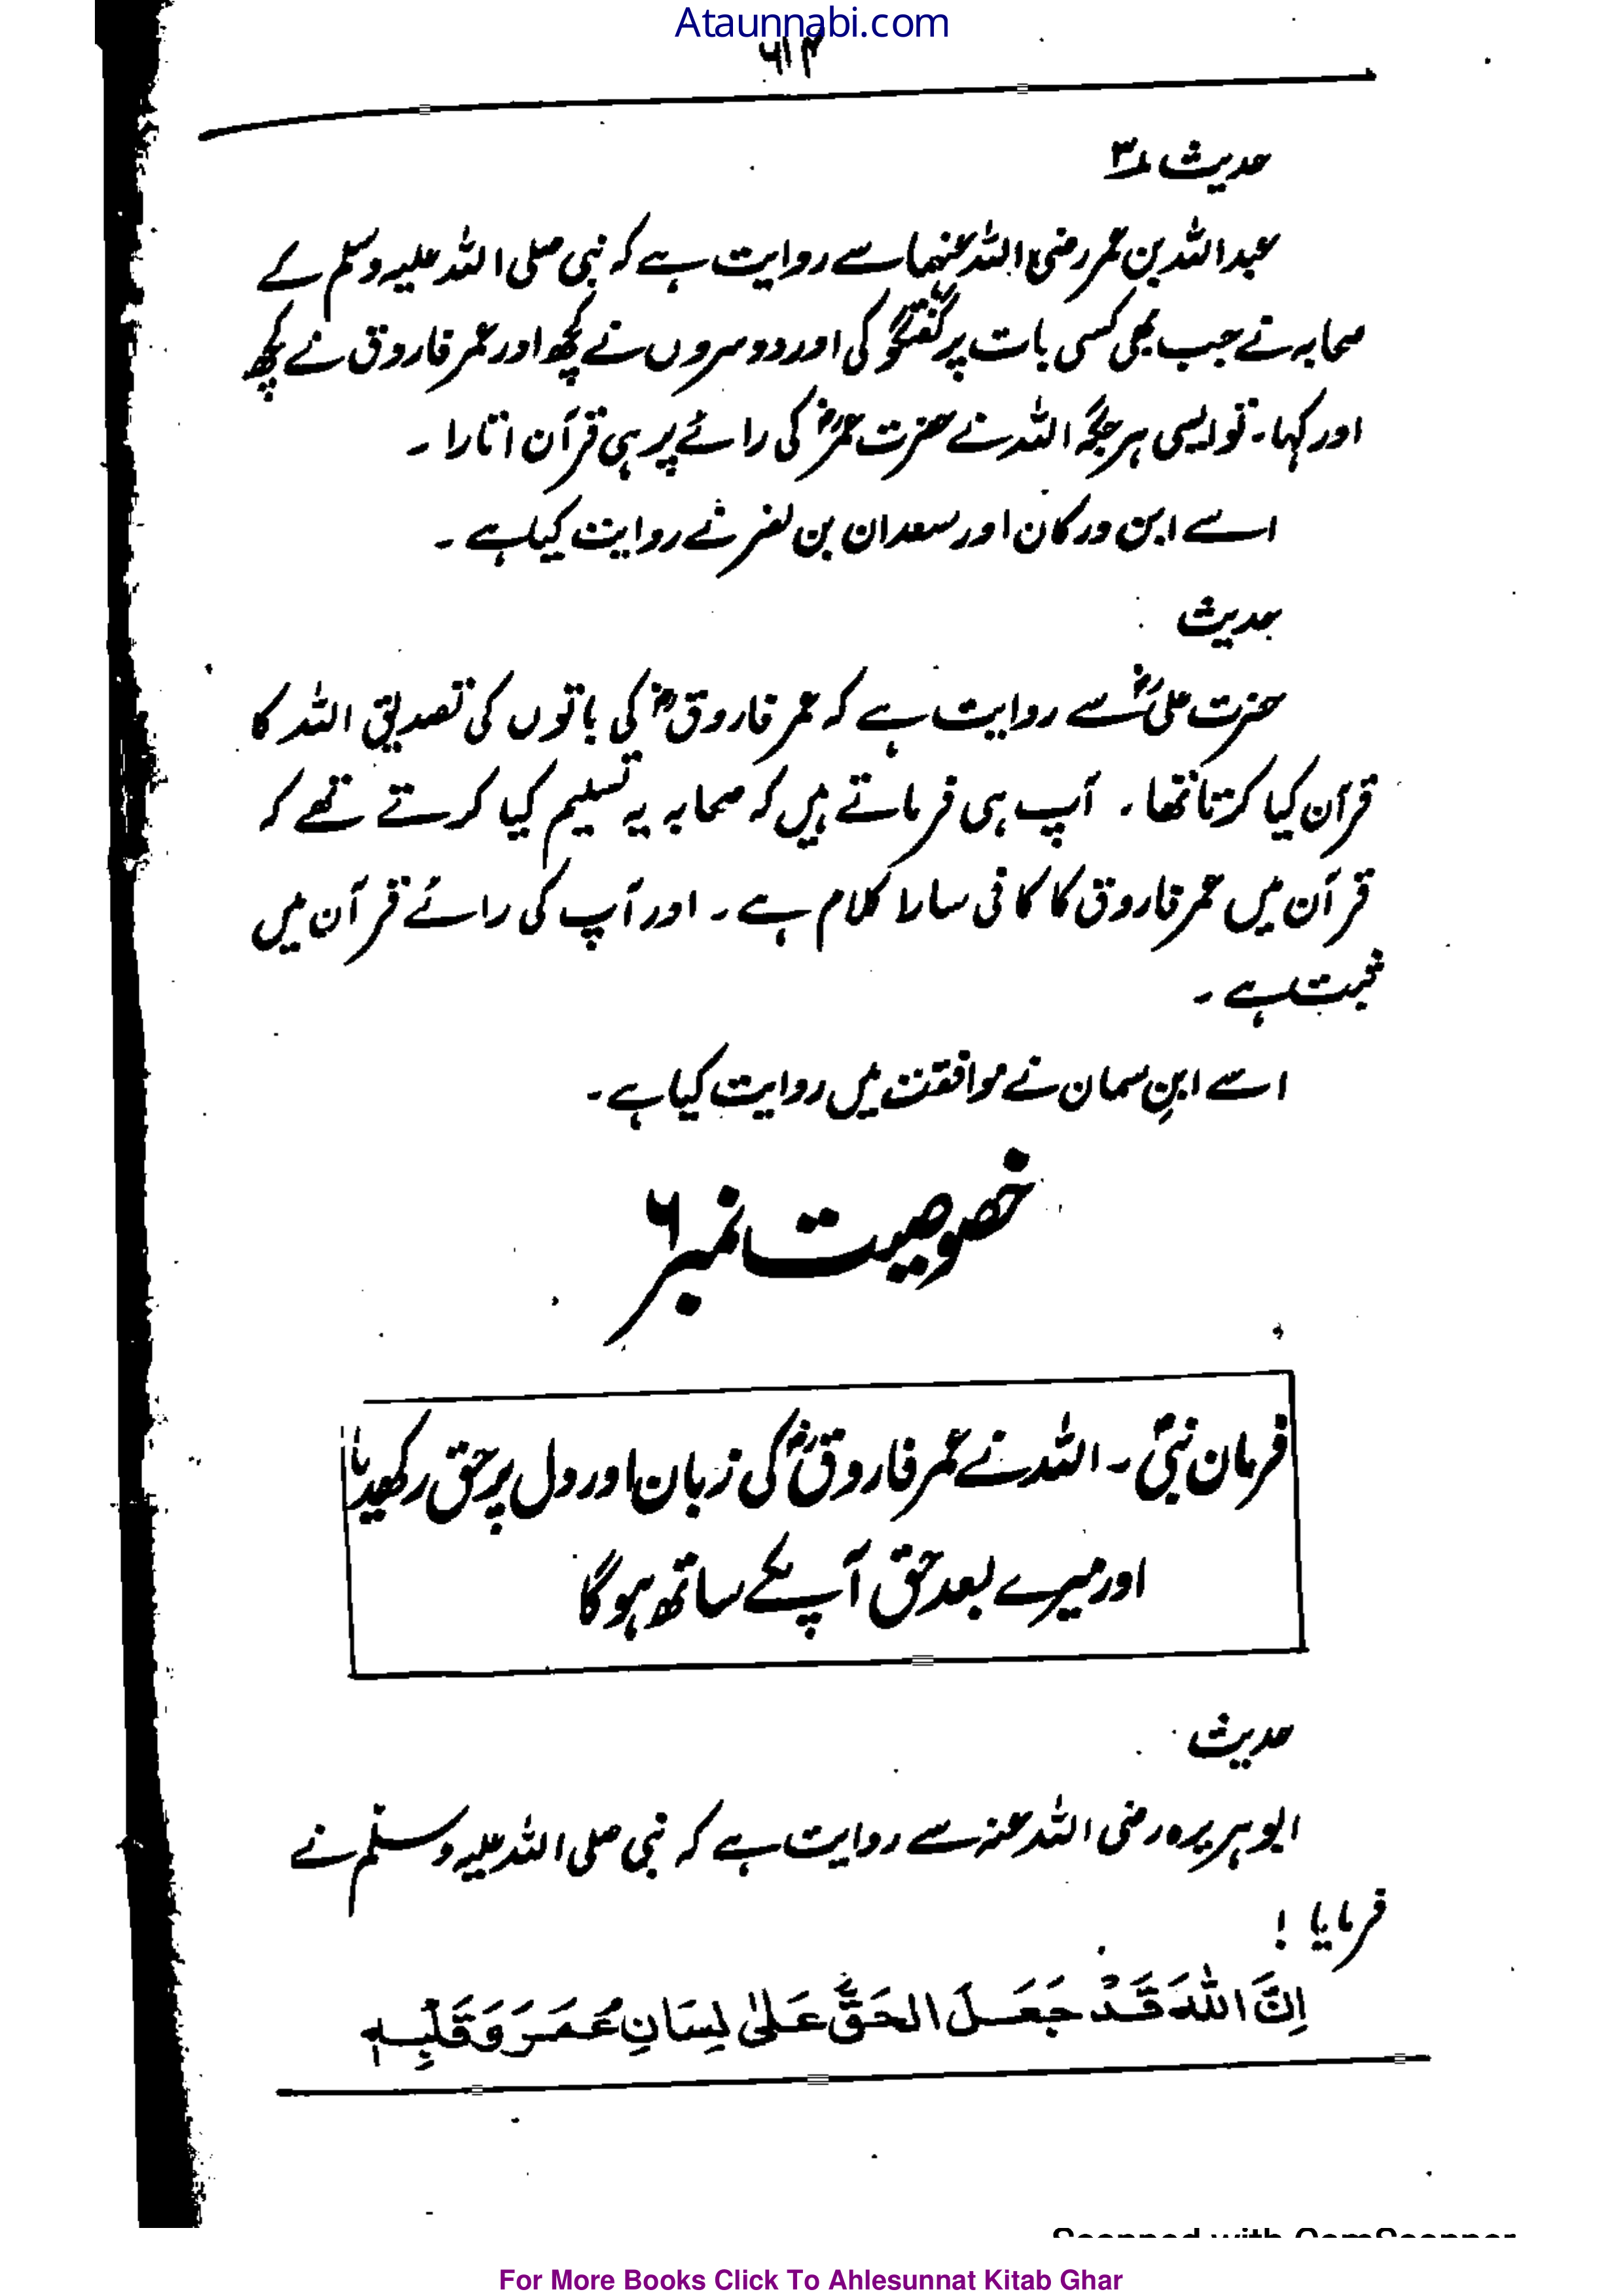 Ataunnabi.com
۶۱۴
حدیث ۳۸
عبداللہ بن عمر رضی اللہ عنہما سے روایت ہے کہ نبی صلی اللہ علیہ وسلم کے
صحابہ نے جب بھی کسی بات پر گفتگو کی اور دوسروں نے کچھ اور عمر فاروق نے کچھ
اور کہا۔ تو ایسی ہر جگہ اللہ نے حضرت عمرؓ کی رائے پر ہی قرآن اتارا ۔
اسے ابن ورکان اور سعدان بن نصر نے روایت کیا ہے ۔
حدیث
حضرت علیؓ سے روایت ہے کہ عمر فاروقؓ کی باتوں کی تصدیق اللہ کا
قرآن کیا کرتا تھا ۔ آپ ہی فرماتے ہیں کہ صحابہ یہ تسلیم کیا کرتے تھے کہ
قرآن میں عمر فاروق کا کافی سارا کلام ہے ۔ اور آپ کی رائے قرآن میں
ثبت ہے ۔
اسے ابنِ سمان نے موافقت میں روایت کیا ہے ۔
خصوصیت نمبر ۶
فرمان نبیؐ ۔ اللہ نے عمر فاروقؓ کی زبان اور دل پر حق رکھ دیا
اور میرے بعد حق آپ کے ساتھ ہو گا
حدیث
ابو ہریرہ رضی اللہ عنہ سے روایت ہے کہ نبی صلی اللہ علیہ وسلم نے
فرمایا !
اِنَّ اللہَ قَدْ جَعَلَ الحَقَّ عَلیٰ لِسَانِ عُمَرَ وَ قَلْبِہٖ
Scanned with CamScanner
For More Books Click To Ahlesunnat Kitab Ghar